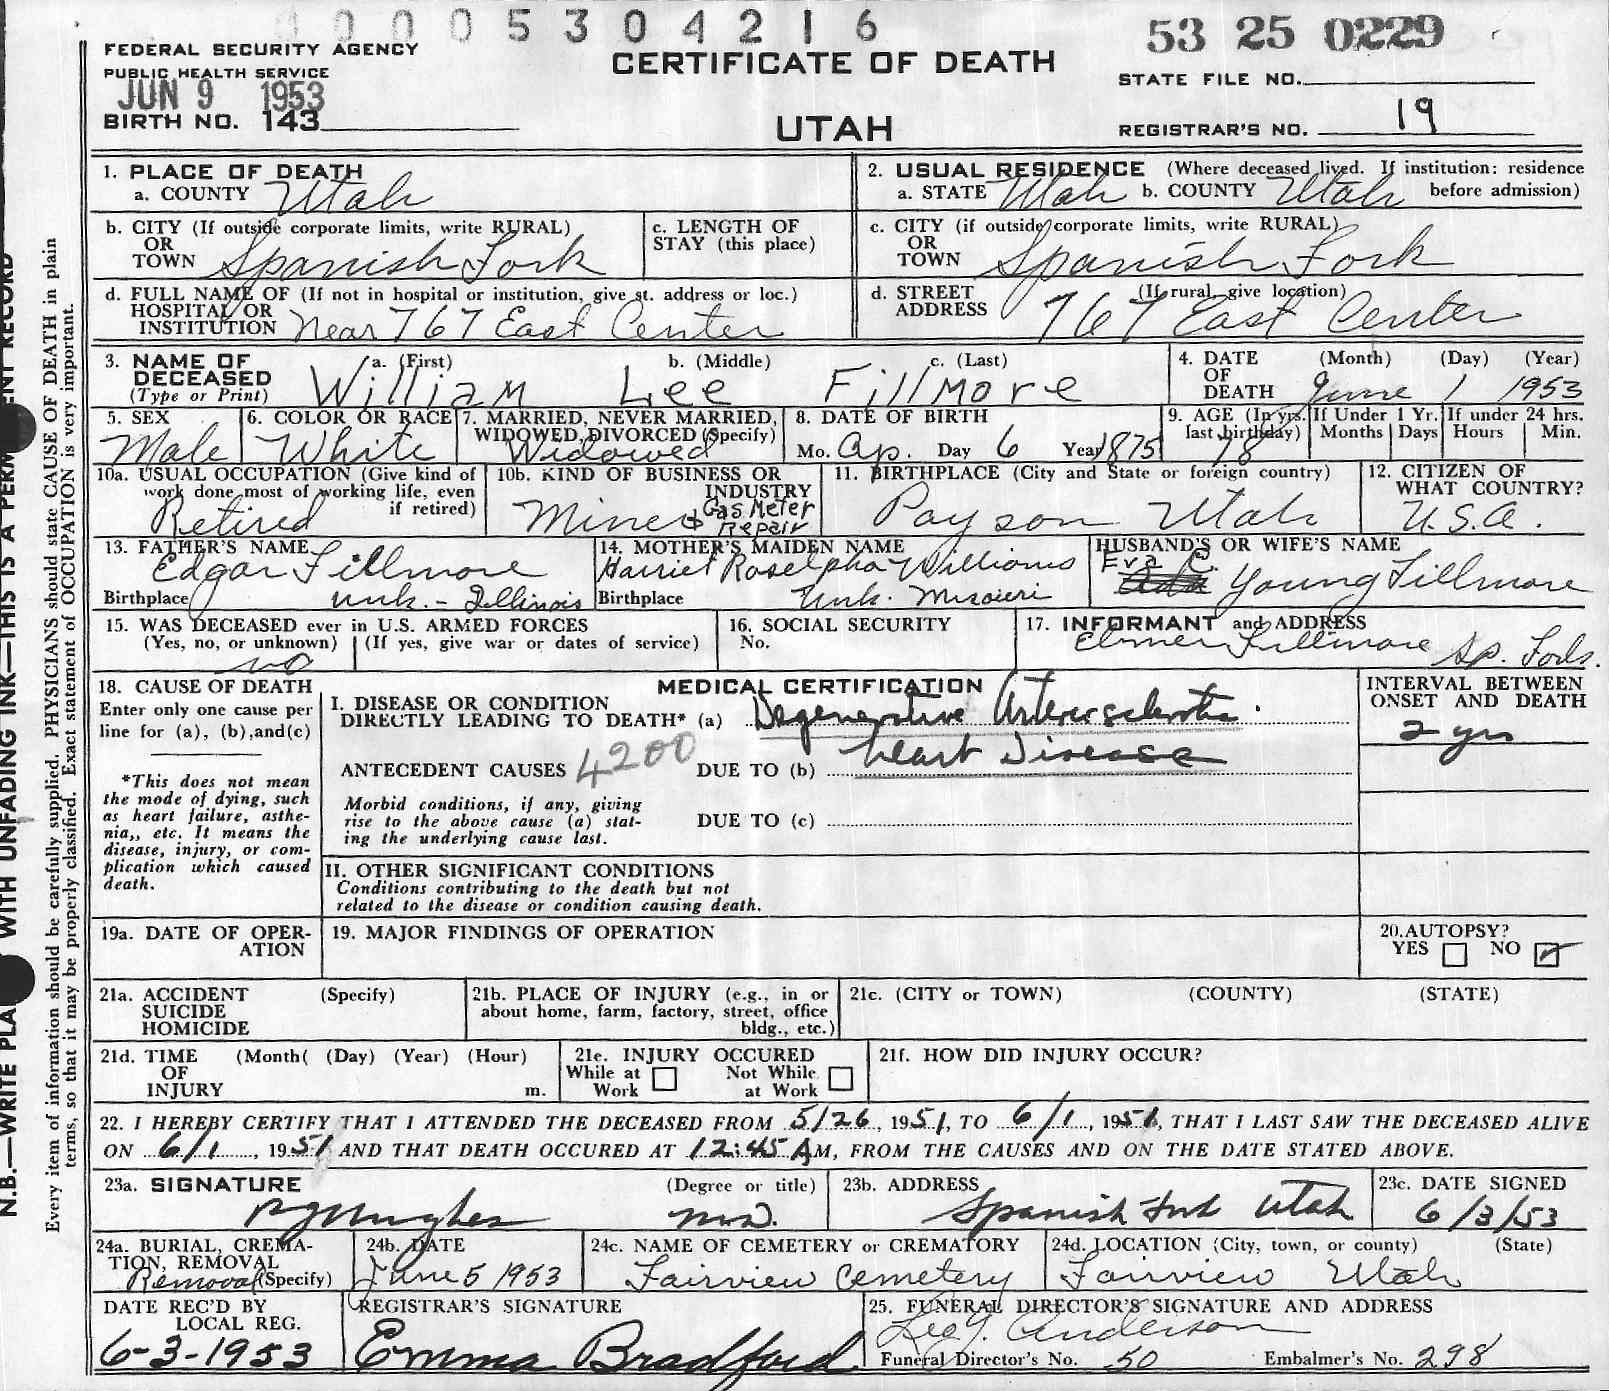 0 0 0 0 5 3 0 4 2 1 6
53 25 0229
FEDERAL SECURITY AGENCY
PUBLIC HEALTH SERVICE
JUN 9 1953
BIRTH NO. 143
CERTIFICATE OF DEATH
UTAH
STATE FILE NO.
REGISTRAR'S NO. 19
N.B.—WRITE PLA WITH UNFADING INK—THIS IS A PERM ENT RECORD
Every item of information should be carefully supplied. PHYSICIANS should state CAUSE OF DEATH in plain
terms, so that it may be properly classified. Exact statement of OCCUPATION is very important.
1. PLACE OF DEATH
a. COUNTY Utah
2. USUAL RESIDENCE (Where deceased lived. If institution: residence
a. STATE Utah b. COUNTY Utah before admission)
b. CITY (If outside corporate limits, write RURAL)
OR
TOWN Spanish Fork
c. LENGTH OF
STAY (this place)
c. CITY (if outside corporate limits, write RURAL)
OR
TOWN Spanish Fork
d. FULL NAME OF (If not in hospital or institution, give st. address or loc.)
HOSPITAL OR
INSTITUTION Near 767 East Center
d. STREET (If rural, give location)
ADDRESS 767 East Center
3. NAME OF a. (First) b. (Middle) c. (Last)
DECEASED
(Type or Print) William Lee Fillmore
4. DATE (Month) (Day) (Year)
OF
DEATH June 1 1953
5. SEX
Male
6. COLOR OR RACE
White
7. MARRIED, NEVER MARRIED,
WIDOWED, DIVORCED (Specify)
Widowed
8. DATE OF BIRTH
Mo. Ap. Day 6 Year 1875
9. AGE (In yrs. last birthday)
78
If Under 1 Yr. Months Days
If under 24 hrs. Hours Min.
10a. USUAL OCCUPATION (Give kind of
work done most of working life, even
if retired)
Retired
10b. KIND OF BUSINESS OR
INDUSTRY
Miner & Gas Meter
Repair
11. BIRTHPLACE (City and State or foreign country)
Payson Utah
12. CITIZEN OF
WHAT COUNTRY?
U.S.A.
13. FATHER'S NAME
Edgar Fillmore
Birthplace unk. - Illinois
14. MOTHER'S MAIDEN NAME
Harriet Roselpha Williams
Birthplace Unk. Missouri
HUSBAND'S OR WIFE'S NAME
Eva C.
Young Fillmore
15. WAS DECEASED ever in U.S. ARMED FORCES
(Yes, no, or unknown) (If yes, give war or dates of service)
no
16. SOCIAL SECURITY
No.
17. INFORMANT and ADDRESS
Elmer Fillmore Sp. Fork.
18. CAUSE OF DEATH
Enter only one cause per
line for (a), (b), and (c)
*This does not mean
the mode of dying, such
as heart failure, asthe-
nia,, etc. It means the
disease, injury, or com-
plication which caused
death.
MEDICAL CERTIFICATION
I. DISEASE OR CONDITION
DIRECTLY LEADING TO DEATH* (a) Degenerative Arteriosclerotic
ANTECEDENT CAUSES 4200 DUE TO (b) heart Disease
Morbid conditions, if any, giving
rise to the above cause (a) stat-
ing the underlying cause last.
DUE TO (c)
II. OTHER SIGNIFICANT CONDITIONS
Conditions contributing to the death but not
related to the disease or condition causing death.
INTERVAL BETWEEN
ONSET AND DEATH
2 yrs
19a. DATE OF OPER-
ATION
19. MAJOR FINDINGS OF OPERATION
20. AUTOPSY?
YES NO
21a. ACCIDENT (Specify)
SUICIDE
HOMICIDE
21b. PLACE OF INJURY (e.g., in or
about home, farm, factory, street, office
bldg., etc.)
21c. (CITY or TOWN) (COUNTY) (STATE)
21d. TIME (Month( (Day) (Year) (Hour)
OF
INJURY m.
21e. INJURY OCCURED
While at Not While
Work at Work
21f. HOW DID INJURY OCCUR?
22. I HEREBY CERTIFY THAT I ATTENDED THE DECEASED FROM 5/26, 1951, TO 6/1, 1951, THAT I LAST SAW THE DECEASED ALIVE
ON 6/1, 1951 AND THAT DEATH OCCURED AT 12:45 AM, FROM THE CAUSES AND ON THE DATE STATED ABOVE.
23a. SIGNATURE (Degree or title)
Hughes M.D.
23b. ADDRESS
Spanish Fork Utah
23c. DATE SIGNED
6/3/53
24a. BURIAL, CREMA-
TION, REMOVAL
Removal (Specify)
24b. DATE
June 5 1953
24c. NAME OF CEMETERY or CREMATORY
Fairview Cemetery
24d. LOCATION (City, town, or county) (State)
Fairview Utah
DATE REC'D BY
LOCAL REG.
6-3-1953
REGISTRAR'S SIGNATURE
Emma Bradford
25. FUNERAL DIRECTOR'S SIGNATURE AND ADDRESS
Anderson
Funeral Director's No. 50 Embalmer's No. 298